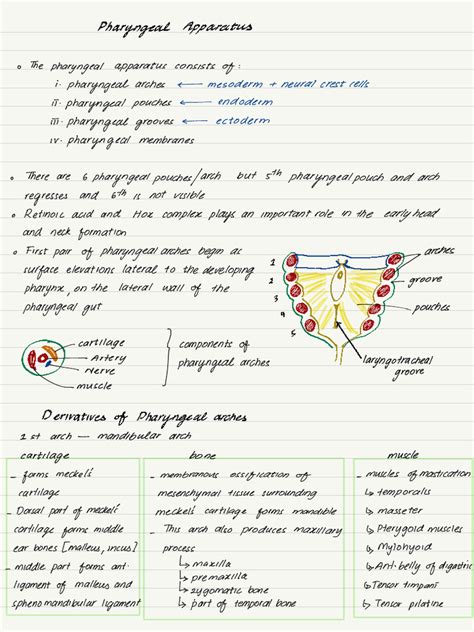 Pharyngeal Apparatus
The pharyngeal apparatus consists of:
i. pharyngeal arches ← mesoderm + neural crest cells
ii. pharyngeal pouches ← endoderm
iii. pharyngeal grooves ← ectoderm
iv. pharyngeal membranes
There are 6 pharyngeal pouches/arch but 5th pharyngeal pouch and arch
regresses and 6th is not visible
Retinoic acid and Hox complex plays an important role in the early head
and neck formation
First pair of pharyngeal arches begin as
surface elevations lateral to the developing
pharynx, on the lateral wall of the
pharyngeal gut
1
2
3
4
5
arches
groove
pouches
laryngotracheal
groove
cartilage
Artery
Nerve
muscle
components of
pharyngeal arches
Derivatives of Pharyngeal arches
1st arch — mandibular arch
cartilage
- forms meckel's
cartilage
- Dorsal part of meckel's
cartilage forms middle
ear bones [malleus, incus]
- middle part forms ant.
ligament of malleus and
sphenomandibular ligament
bone
- membranous ossification of
mesenchymal tissue surrounding
meckel's cartilage forms mandible
- This arch also produces maxillary
process
↳ maxilla
↳ premaxilla
↳ zygomatic bone
↳ part of temporal bone
muscle
- muscles of mastication
↳ temporalis
↳ masseter
↳ Pterygoid muscles
↳ Mylohyoid
↳ Ant. belly of digastric
↳ Tensor timpani
↳ Tensor pilatine